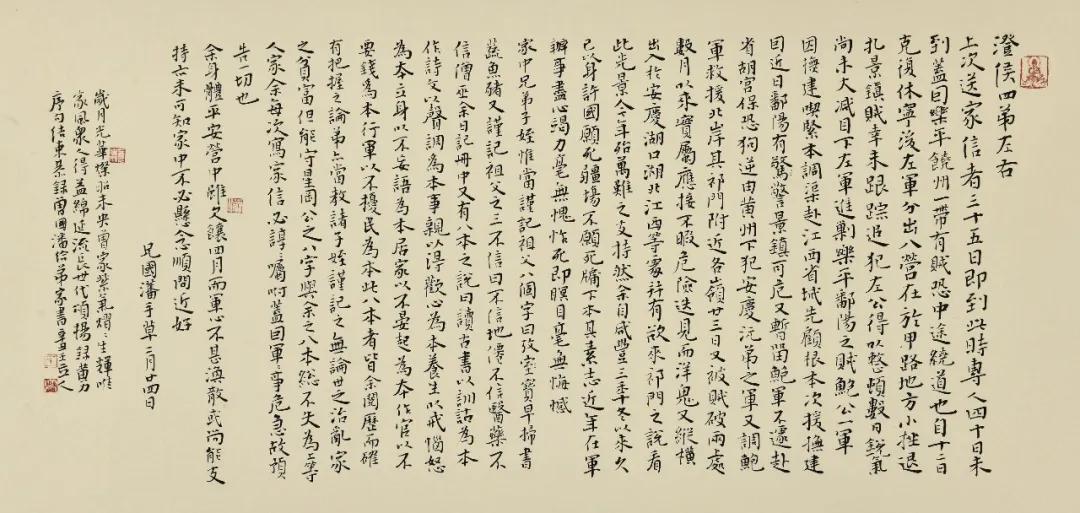 澄侯四弟左右
上次送家信者三十五日即到此時專人四十日未
到蓋因樂平饒州一帶有賊恐中途繞道也自十二日
克復休寧後左軍分出八營在於甲路地方小挫退
扎景鎮賊幸未跟踪追犯左公得以整頓數日銳氣
尚未大减目下左軍進剿樂平鄱陽之賊鮑公一軍
因撫建喫緊本調渠赴江西省城先顧根本次援撫建
因近日鄱陽有驚警景鎮可危又暫留鮑軍不遽赴
省胡宫保恐狗逆由黄州下犯安慶沅弟之軍又調鮑
軍救援北岸其祁門附近各嶺廿三日又被賊破兩處
數月以來實屬應接不暇危險迭見而洋鬼又縱橫
出入於安慶湖口湖北江西等處并有欲來祁門之說看
此光景今年殆萬難之支持然余自咸豐三年冬以來久
已以身許國願死疆場不願死牖下本其素志近年在軍
辦事盡心竭力毫無愧怍死即瞑目毫無悔憾
家中兄弟子姪惟當謹記祖父八個字曰考室寶早掃書
蔬魚豬又謹記祖父之三不信曰不信地僊不信醫藥不
信僧巫余日記冊中又有八本之說曰讀古書以訓詁為本
作詩文以聲調為本事親以得歡心為本養生以戒惱怒
為本立身以不妄語為本居家以不晏起為本作官以不
要錢為本行軍以不擾民為本此八本者皆余閱歷而確
有把握之論弟亦當教諸子姪謹記之無論世之治亂家
之貧富但能守星岡公之八字與余之八本總不失為上等
人家余每次寫家信必諄諄囑咐蓋因軍事危急故預
告一切也
余身體平安營中雖欠餉四月而軍心不甚渙散或尚能支
持亦未可知家中不必懸念順問近好
兄國藩手草二月廿四日
歲月光華燦昭未央曾家紫氣熠熠生輝唯
家風衆人得益綿延流長世代頌揚錄
錄曾國藩给弟家書辛丑